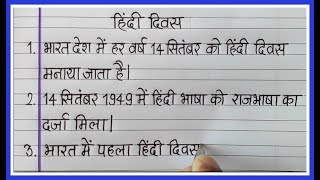 हिंदी दिवस
1. भारत देश में हर वर्ष 14 सितंबर को हिंदी दिवस
मनाया जाता है।
2. 14 सितंबर 1949 में हिंदी भाषा को राजभाषा का
दर्जा मिला।
3. भारत में पहला हिंदी दिवस